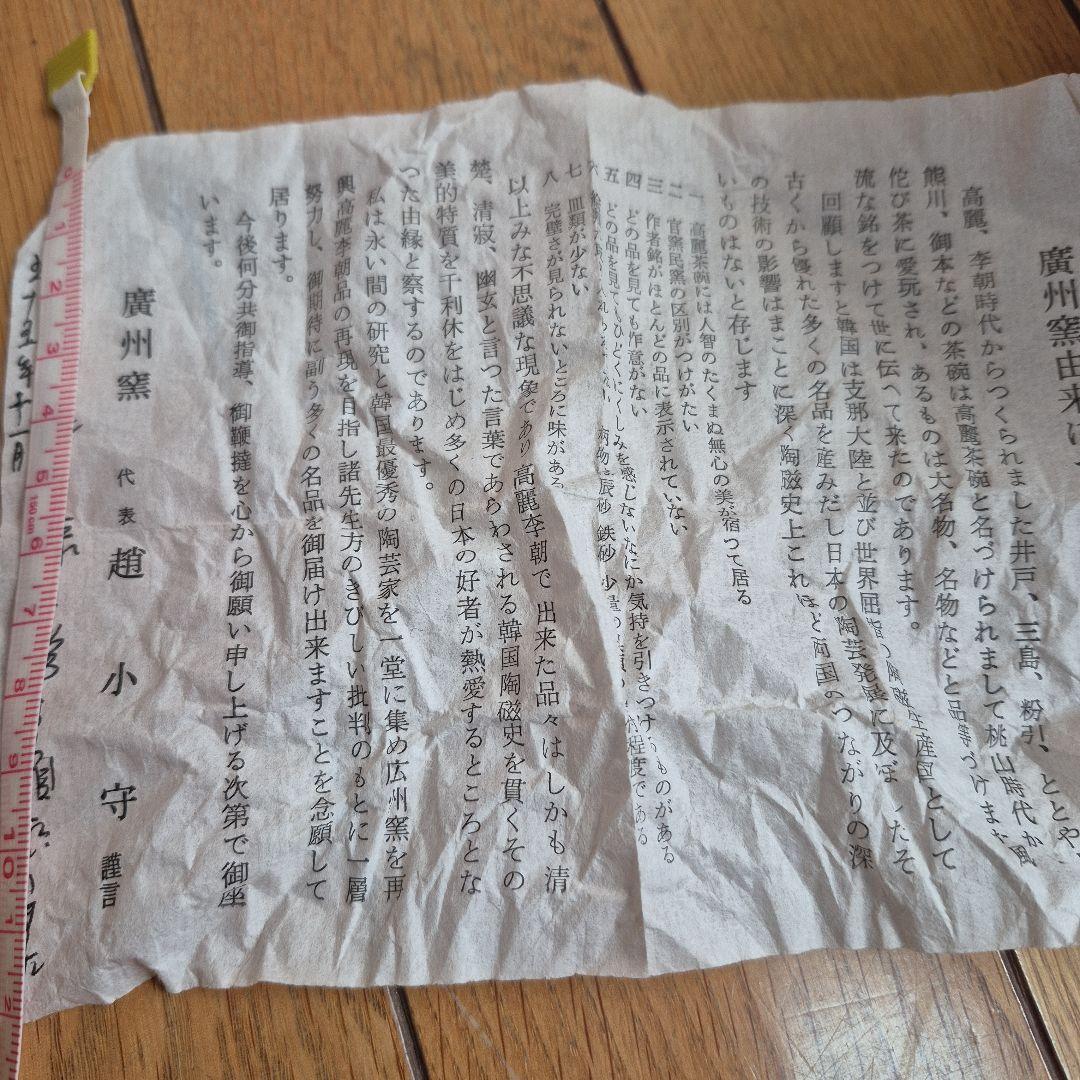 廣州窯由来
高麗、李朝時代からつくられました井戸、三島、粉引、ととや
熊川、御本などの茶碗は高麗茶碗と名づけられまして桃山時代か
侘び茶に愛玩され、あるものは大名物、名物などと品等づけまた風
流な銘をつけて世に伝へて来たのであります。
回顧しますと韓国は支那大陸と並び世界屈指 生産国として
古くから優れた多くの名品を産みだし日本の陶芸発展に及ぼしたそ
の技術の影響はまことに深く陶磁史上これほど両国のつながりの深
いものはないと存じます
一 高麗茶碗には人智のたくまぬ無心の美が宿つて居る
二 官窯民窯の区別がつけがたい
三 作者銘がほとんどの品に表示されていない
四 どの品を見ても作意がない
五 どの品を見てもひどくにくしみを感じないなにか気持を引きつけるものがある
六 辰砂 鉄砂 少量の 程度である
七 皿類が少ない
八 完璧さが見られないところに味がある
以上みな不思議な現象であり高麗李朝で出来た品々はしかも清
楚、清寂、幽玄と言つた言葉であらわされる韓国陶磁史を貫くその
美的特質を千利休をはじめ多くの日本の好者が熱愛するところとな
つた由縁と察するのであります。
私は永い間の研究と韓国最優秀の陶芸家を一堂に集め広州窯を再
興高麗李朝品の再現を目指し諸先生方のきびしい批判のもとに一層
努力し、御期待に副う多くの名品を御届け出来ますことを念願して
居ります。
今後何分共御指導、御鞭撻を心から御願い申し上げる次第で御座
います。
廣州窯 代表 趙小守 謹言
年十一月